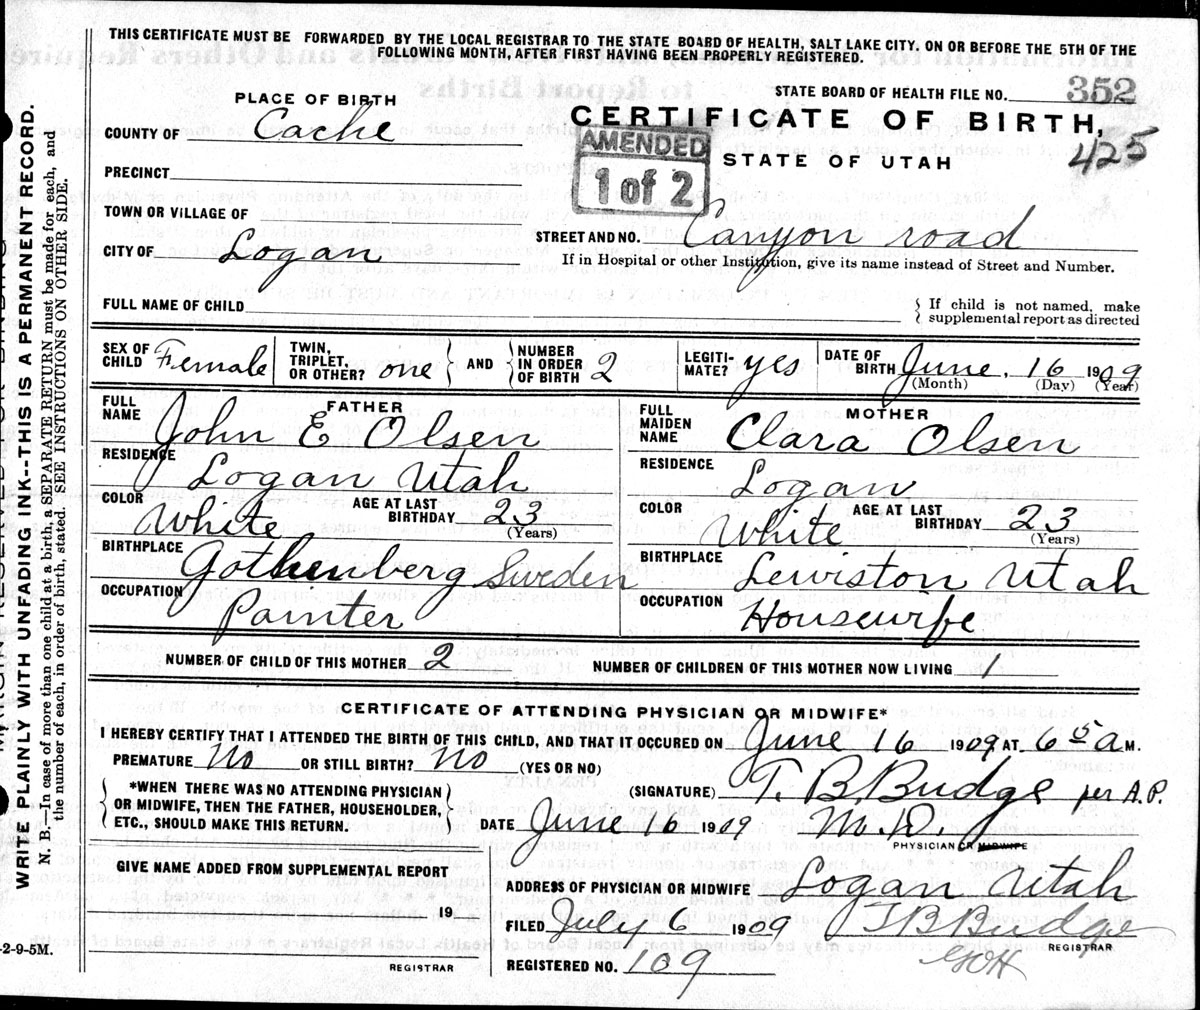 THIS CERTIFICATE MUST BE FORWARDED BY THE LOCAL REGISTRAR TO THE STATE BOARD OF HEALTH, SALT LAKE CITY. ON OR BEFORE THE 5TH OF THE
FOLLOWING MONTH, AFTER FIRST HAVING BEEN PROPERLY REGISTERED.
STATE BOARD OF HEALTH FILE NO. 352
PLACE OF BIRTH
CERTIFICATE OF BIRTH,
COUNTY OF Cache
AMENDED
1 of 2
STATE OF UTAH
425
PRECINCT
TOWN OR VILLAGE OF
STREET AND NO. Canyon road
CITY OF Logan
If in Hospital or other Institution, give its name instead of Street and Number.
FULL NAME OF CHILD
{ If child is not named, make
supplemental report as directed
SEX OF CHILD Female
TWIN, TRIPLET, OR OTHER? one
AND
NUMBER IN ORDER OF BIRTH 2
LEGITI-MATE? yes
DATE OF BIRTH June, 16 1909
(Month) (Day) (Year)
FATHER
FULL NAME John E Olsen
RESIDENCE Logan Utah
COLOR White
AGE AT LAST BIRTHDAY 23
(Years)
BIRTHPLACE Gothenberg Sweden
OCCUPATION Painter
MOTHER
FULL MAIDEN NAME Clara Olsen
RESIDENCE Logan
COLOR White
AGE AT LAST BIRTHDAY 23
(Years)
BIRTHPLACE Lewiston Utah
OCCUPATION Housewife
NUMBER OF CHILD OF THIS MOTHER 2
NUMBER OF CHILDREN OF THIS MOTHER NOW LIVING 1
CERTIFICATE OF ATTENDING PHYSICIAN OR MIDWIFE*
I HEREBY CERTIFY THAT I ATTENDED THE BIRTH OF THIS CHILD, AND THAT IT OCCURED ON June 16 1909 AT. 6 5 A M.
PREMATURE No OR STILL BIRTH? No (YES OR NO)
(SIGNATURE) T. B Budge per A.P.
*WHEN THERE WAS NO ATTENDING PHYSICIAN
OR MIDWIFE, THEN THE FATHER, HOUSEHOLDER,
ETC., SHOULD MAKE THIS RETURN.
DATE June 16 1909 M.D.
PHYSICIAN OR MIDWIFE
GIVE NAME ADDED FROM SUPPLEMENTAL REPORT
ADDRESS OF PHYSICIAN OR MIDWIFE Logan Utah
19
FILED July 6 1909 T B Budge
REGISTRAR
REGISTRAR
REGISTERED NO. 109
GOH
WRITE PLAINLY WITH UNFADING INK--THIS IS A PERMANENT RECORD.
N. B.—In case of more than one child at a birth, a SEPARATE RETURN must be made for each, and
the number of each, in order of birth, stated. SEE INSTRUCTIONS ON OTHER SIDE.
-2-9-5M.